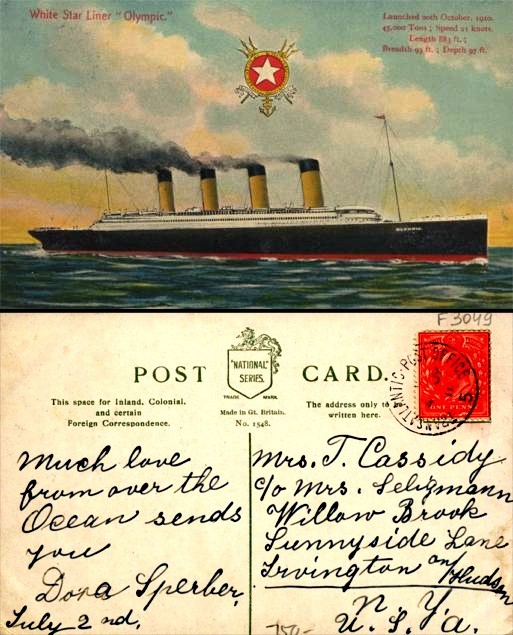 White Star Liner "Olympic."
Launched 20th October, 1910.
45,000 Tons; Speed 21 knots.
Length 883 ft.;
Breadth 93 ft.; Depth 97 ft.
OLYMPIC
F 3049
POST CARD.
"NATIONAL"
SERIES.
TRADE MARK.
Made in Gt. Britain.
No. 1548.
This space for Inland, Colonial,
and certain
Foreign Correspondence.
The address only to be
written here.
TRANSATLANTIC POST OFFICE
5
ONE PENNY
Much love
from over the
Ocean sends
you
Dora Sperber,
July 2nd,
Mrs. T. Cassidy
c/o Mrs. Selzmann
Willow Brook
Sunnyside Lane
Irvington on/Hudson
N. Y.
U. S. A.